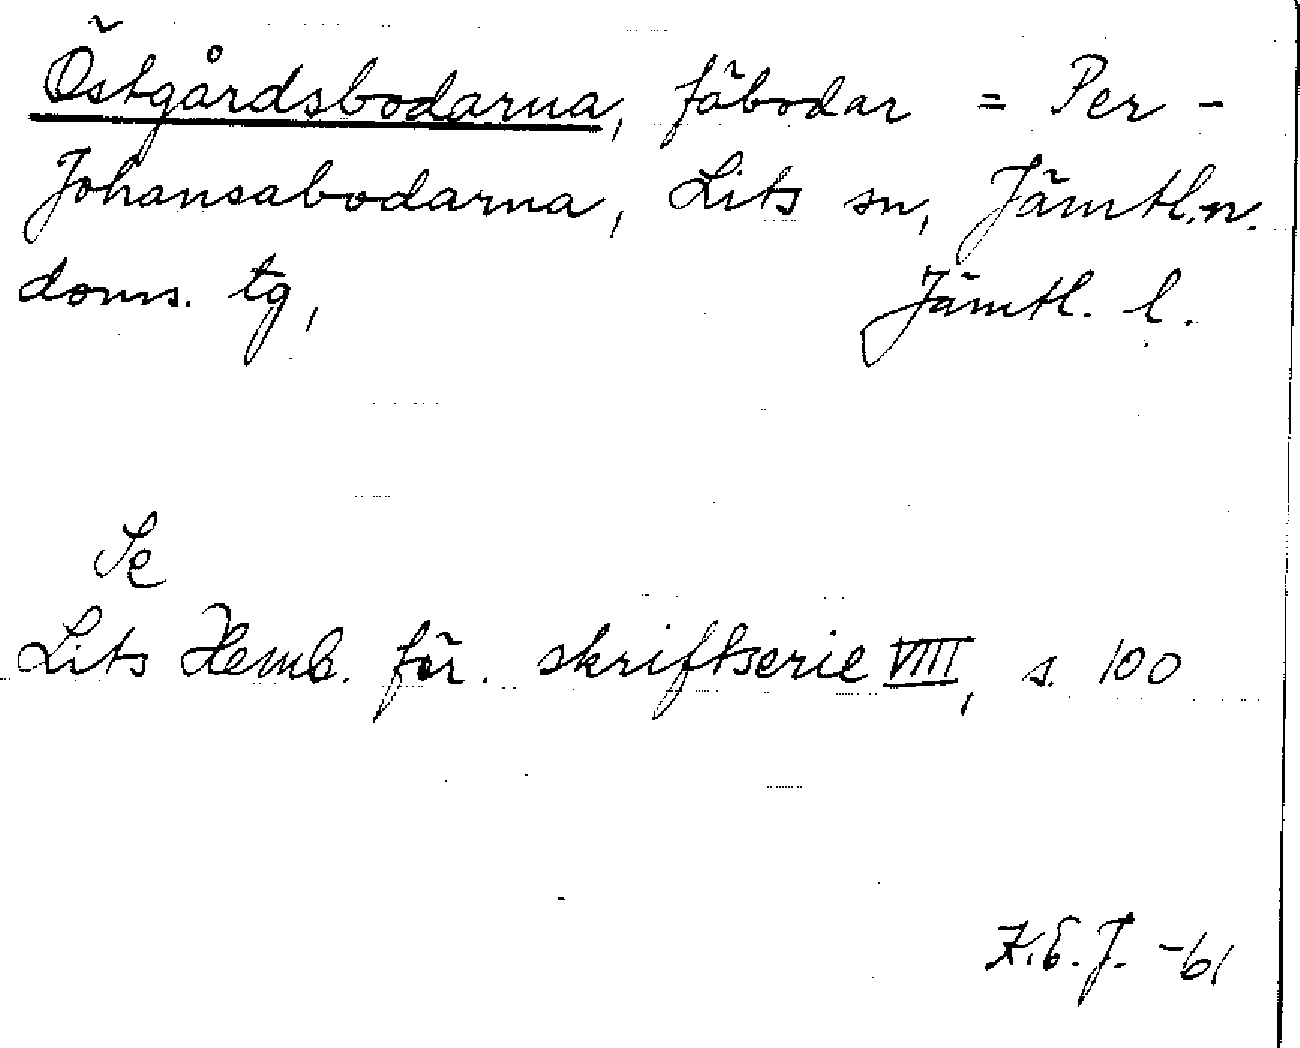 Östgårdsbodarna, fäbodar = Per-
Johansabodarna, Lits sn, Jämtl. n.
doms. tg, Jämtl. l.
Se
Lits Hemb. för. skriftserie VIII, s. 100
K.E.J. -61